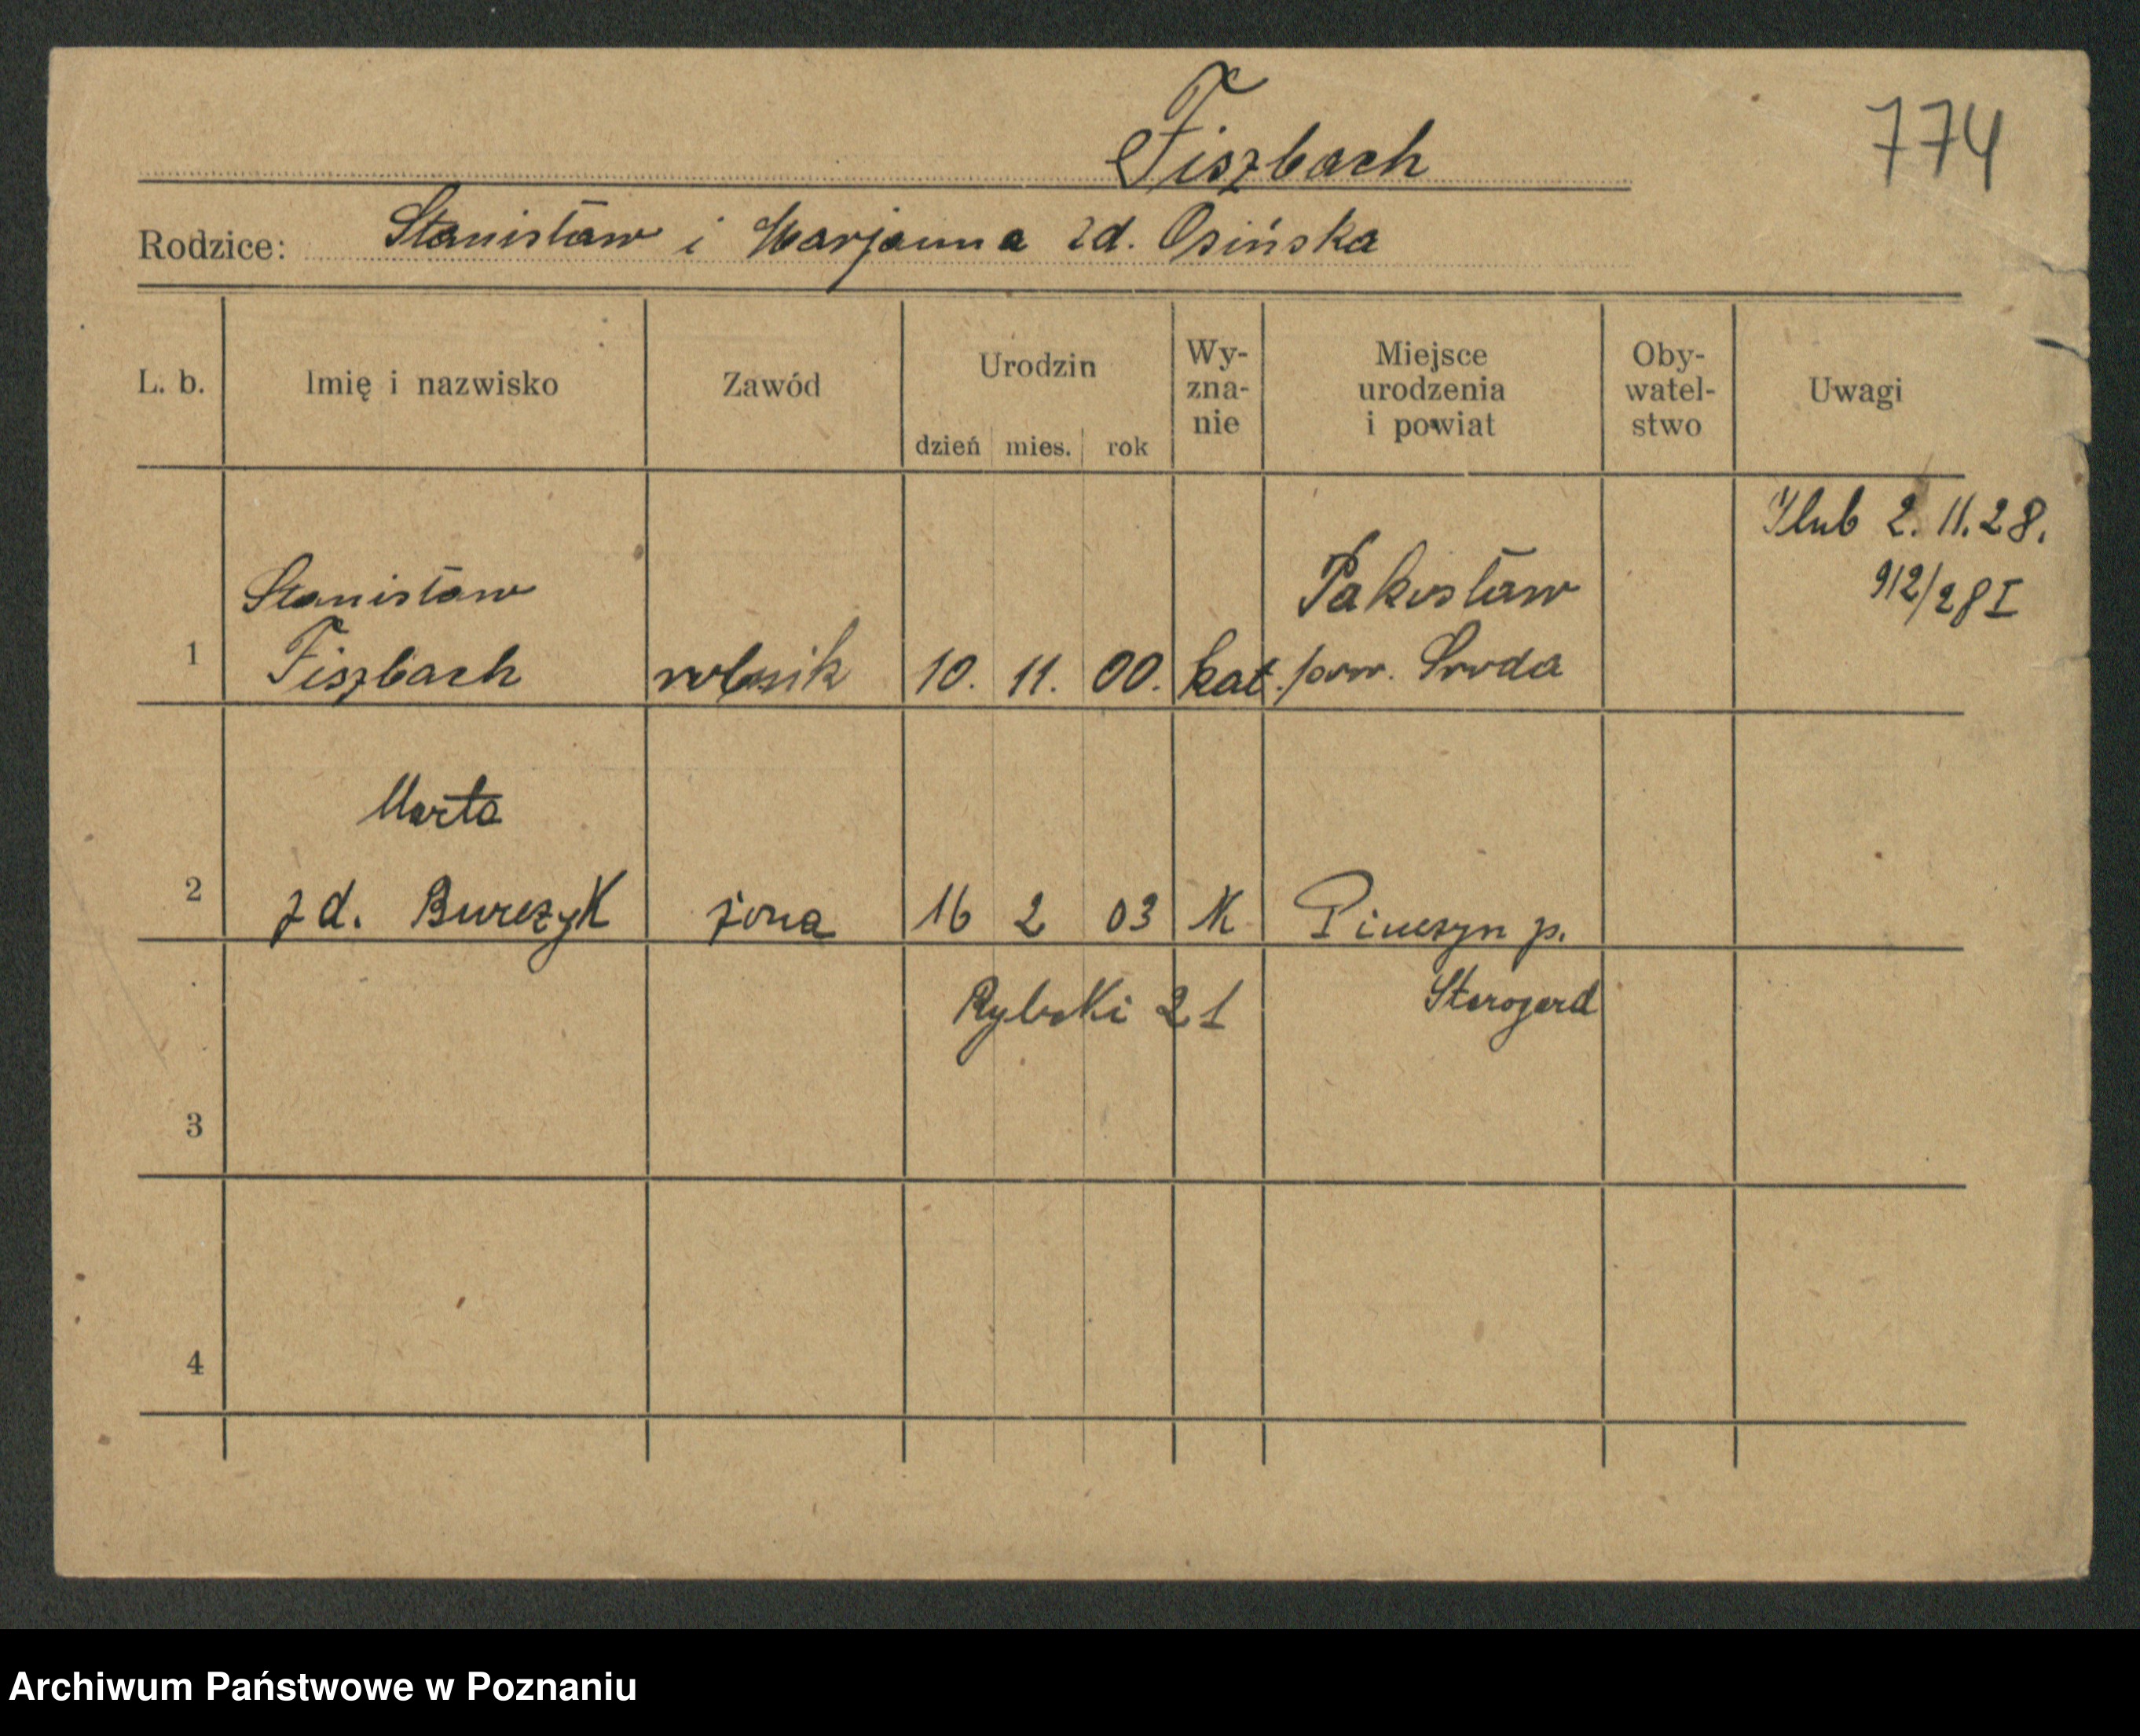 Fiszbach
774
Rodzice: Stanisław i Marjanna zd. Osińska
L. b. Imię i nazwisko Zawód Urodzin dzień mies. rok Wy-zna-nie Miejsce urodzenia i powiat Oby-watel-stwo Uwagi
Ślub 2. 11. 28.
912/28 I
Stanisław Pakosław
1 Fiszbach rolnik 10. 11. 00. kat. pow. Środa
Marta
2 zd. Burczyk żona 16 2 03 K p.
Rybaki 21 Starogard
3
4
Archiwum Państwowe w Poznaniu